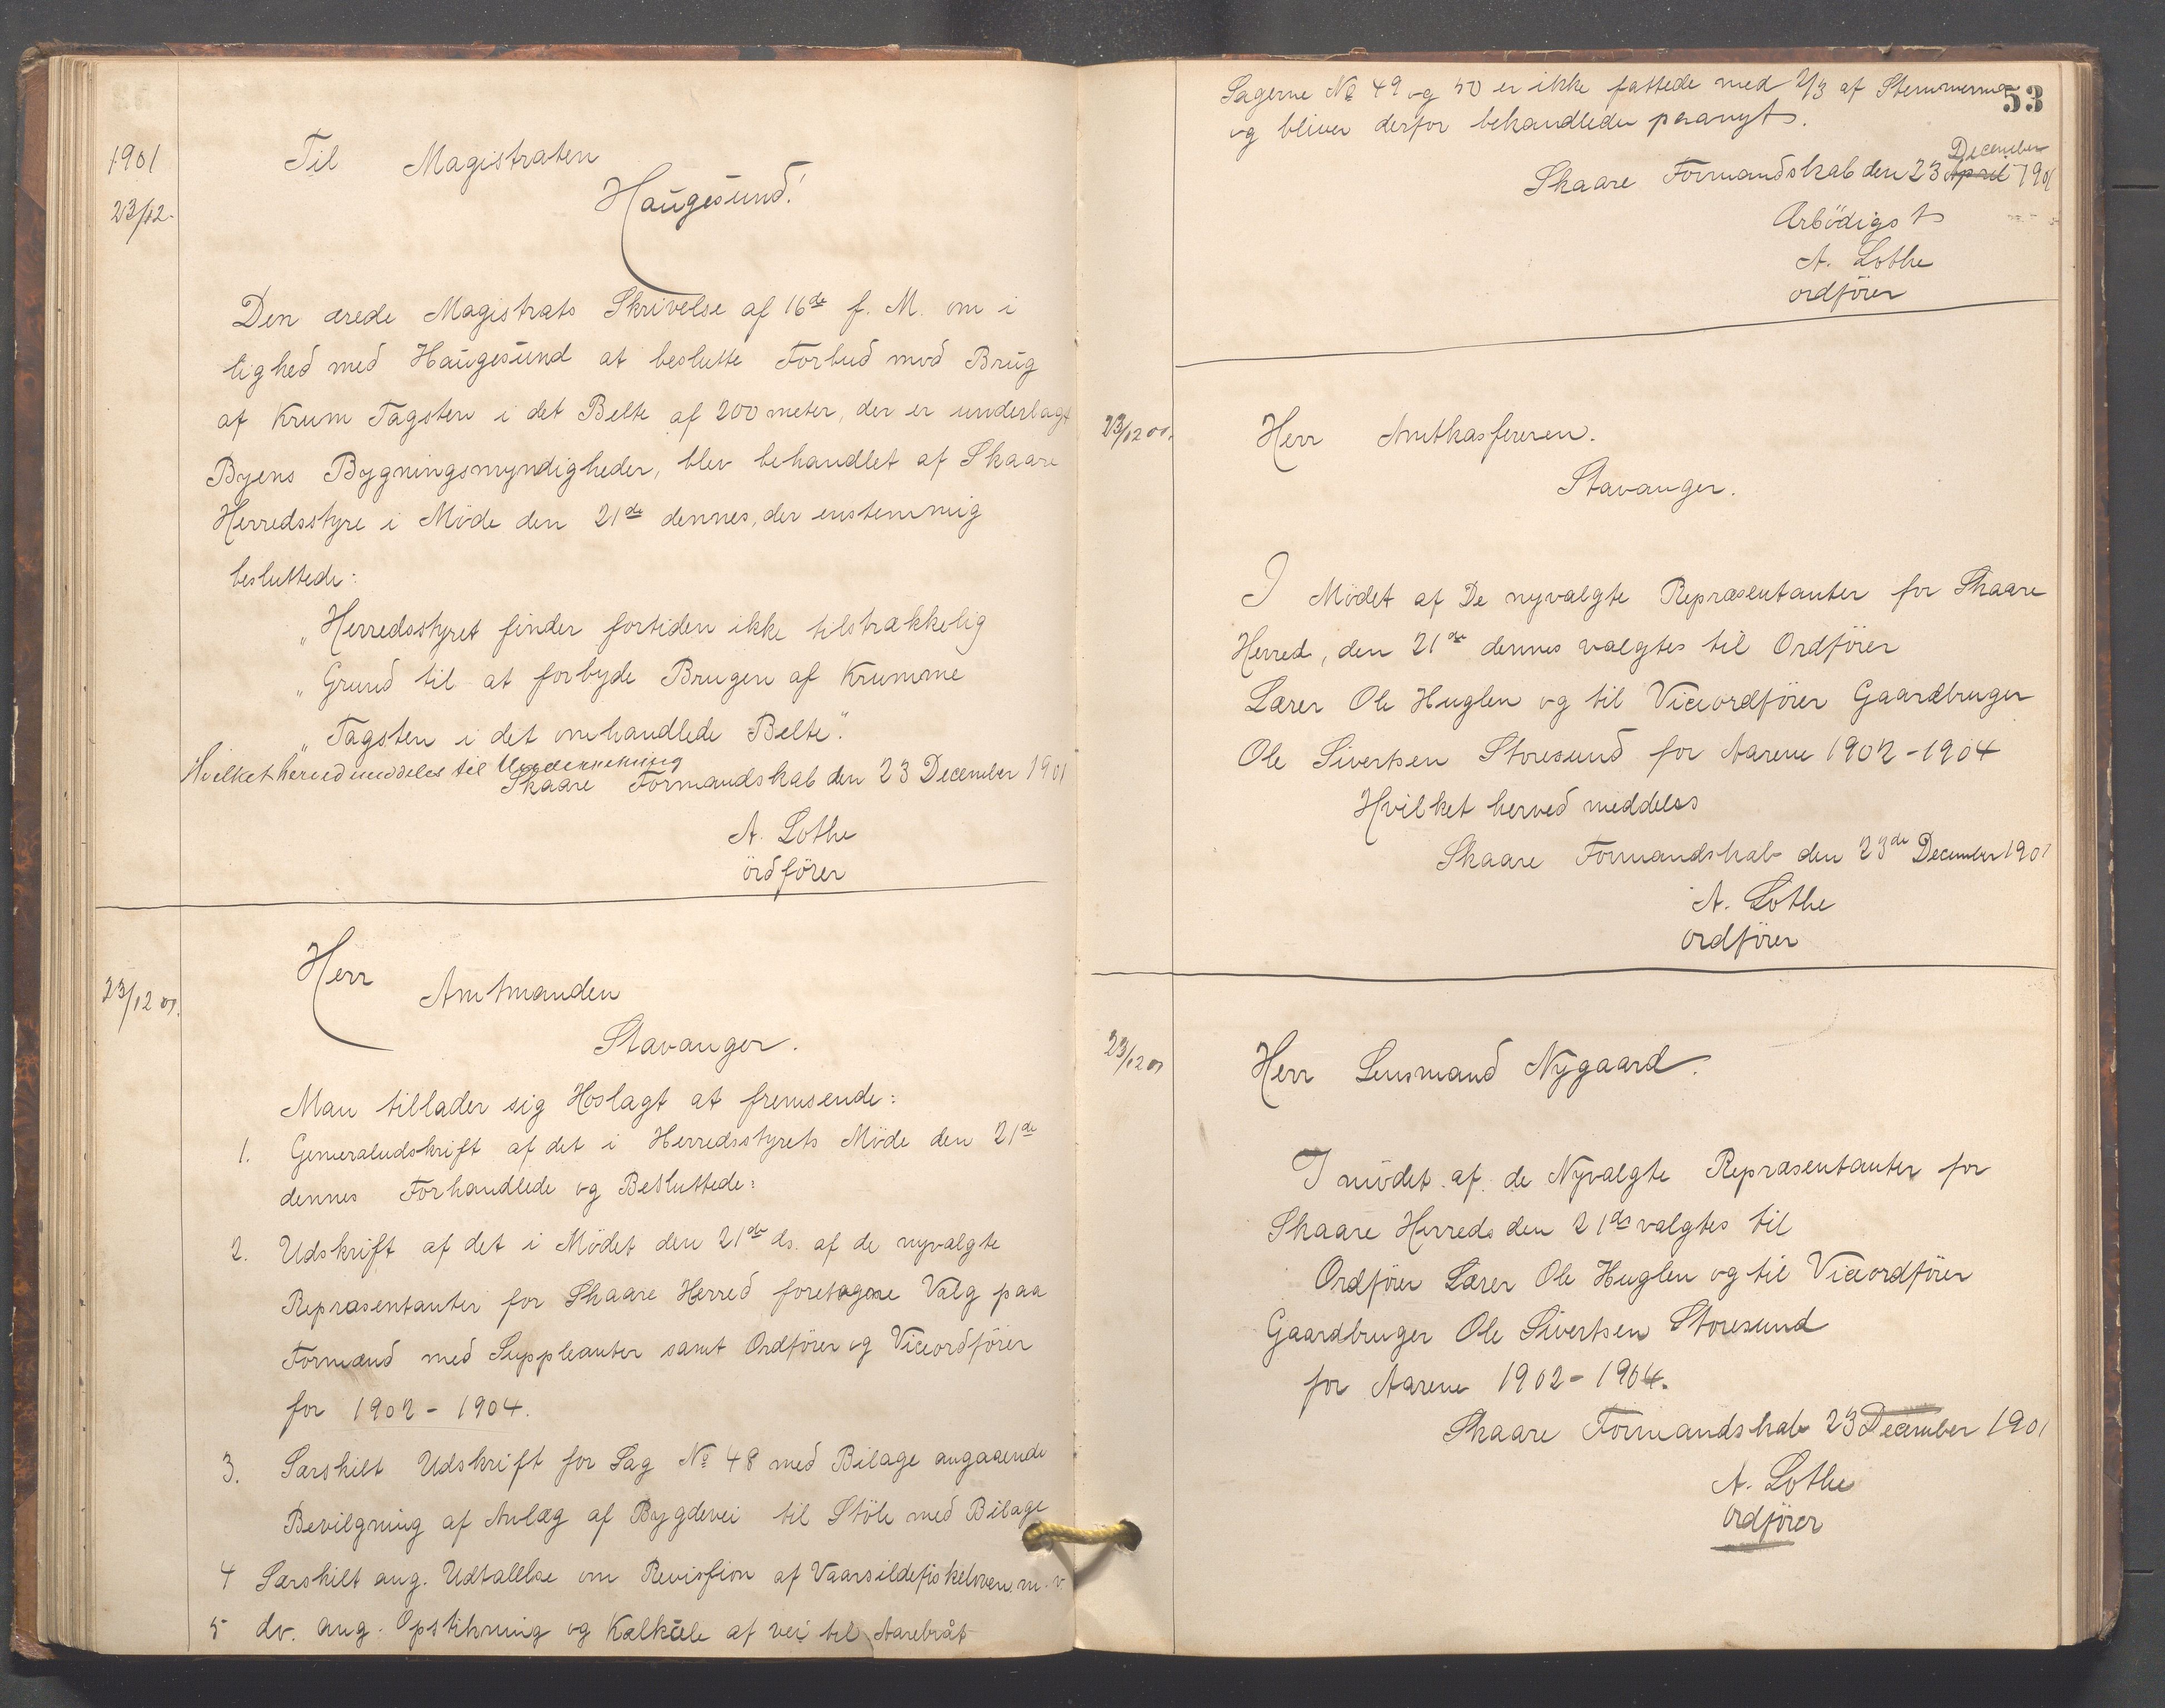 1901
23/12.
Til Magistraten
Haugesund!
Den ærede Magistrats Skrivelse af 16de f. M. om i
lighed med Haugesund at beslutte Forbud mod Brug
af Krum Tagsten i det Belte af 200 meter, der er underlagt
Byens Bygningsmyndigheder, blev behandlet af Skaare
Herredsstyre i Møde den 21de dennes, der enstemmig
besluttede:
"Herredsstyret finder fortiden ikke tilstrækkelig
"Grund til at forbyde Brugen af Krumme
"Tagsten i det omhandlede Belte".
Hvilket herved meddeles til Underretning
Skaare Formandskab den 23 December 1901
A. Lothe
ordfører
23/12 01.
Herr Amtmanden
Stavanger.
Man tillader sig Hoslagt at fremsende:
1. Generaludskrift af det i Herredsstyrets Møde den 21de
dennes Forhandlede og Besluttede:
2. Udskrift af det i Mødet den 21de ds. af de nyvalgte
Repræsentanter for Skaare Herred foretagne Valg paa
Formænd med Suppleanter samt Ordfører og Viceordfører
for 1902 - 1904.
3. Særskilt Udskrift for Sag No 48 med Bilage angaaende
Bevilgning af Anlæg af Bygdevei til Støle med Bilage
4 Særskilt ang. Udtalelse om Revision af Vaarsildefiskeloven m. v.
5 do. ang. Opstikning og Kalkule af vei til Aarebråt
53
Sagerne No 49 og 50 er ikke fattede med 2/3 af Stemmerne
og bliver derfor behandlede paanyt.
December
Skaare Formandskab den 23 April 1901
Ærbødigst
A. Lothe
ordfører
23/12 01.
Herr Amtkasfereren.
Stavanger.
I Mødet af De nyvalgte Repræsentanter for Skaare
Herred, den 21de dennes valgtes til Ordfører
Lærer Ole Huglen og til Viceordfører Gaardbruger
Ole Sivertsen Storesund for Aarene 1902 - 1904
Hvilket herved meddeles
Skaare Formandskab den 23de December 1901
A. Lothe
ordfører
23/12 01
Herr Lensmand Nygaard.
I mødet af de Nyvalgte Repræsentanter for
Skaare Herreds den 21ds valgtes til
Ordfører Lærer Ole Huglen og til Viceordfører
Gaardbruger Ole Sivertsen Storesund
for Aarene 1902 - 1904.
Skaare Formandskab 23 December 1901
A. Lothe
ordfører